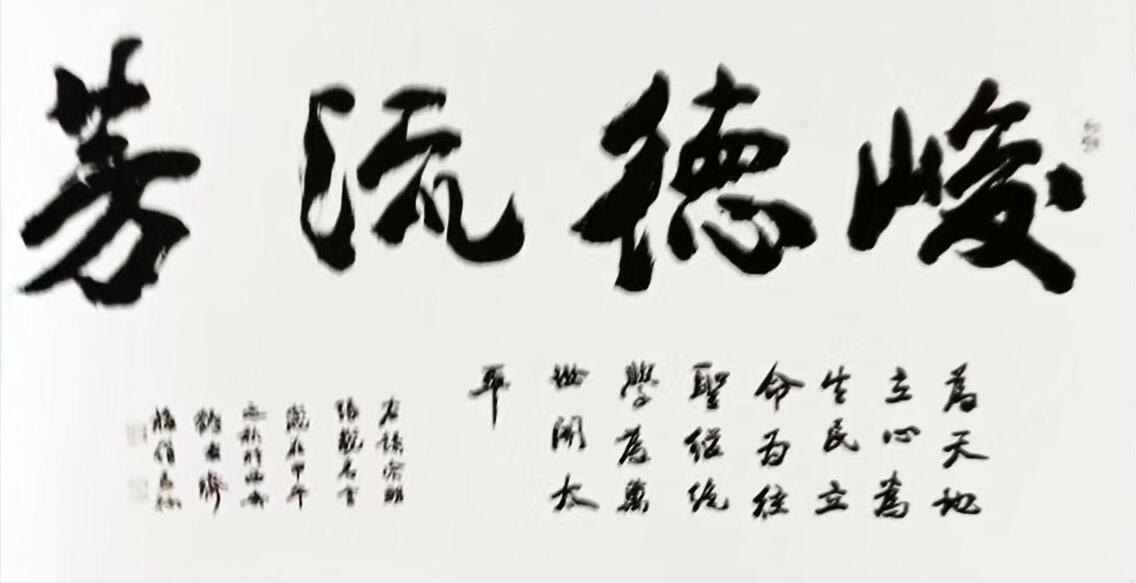 峻德流芳
為天地
立心為
生民立
命为往
聖继绝
學為萬
世開太
平
右錄宋朝
張載名言
歲在甲午
之秋